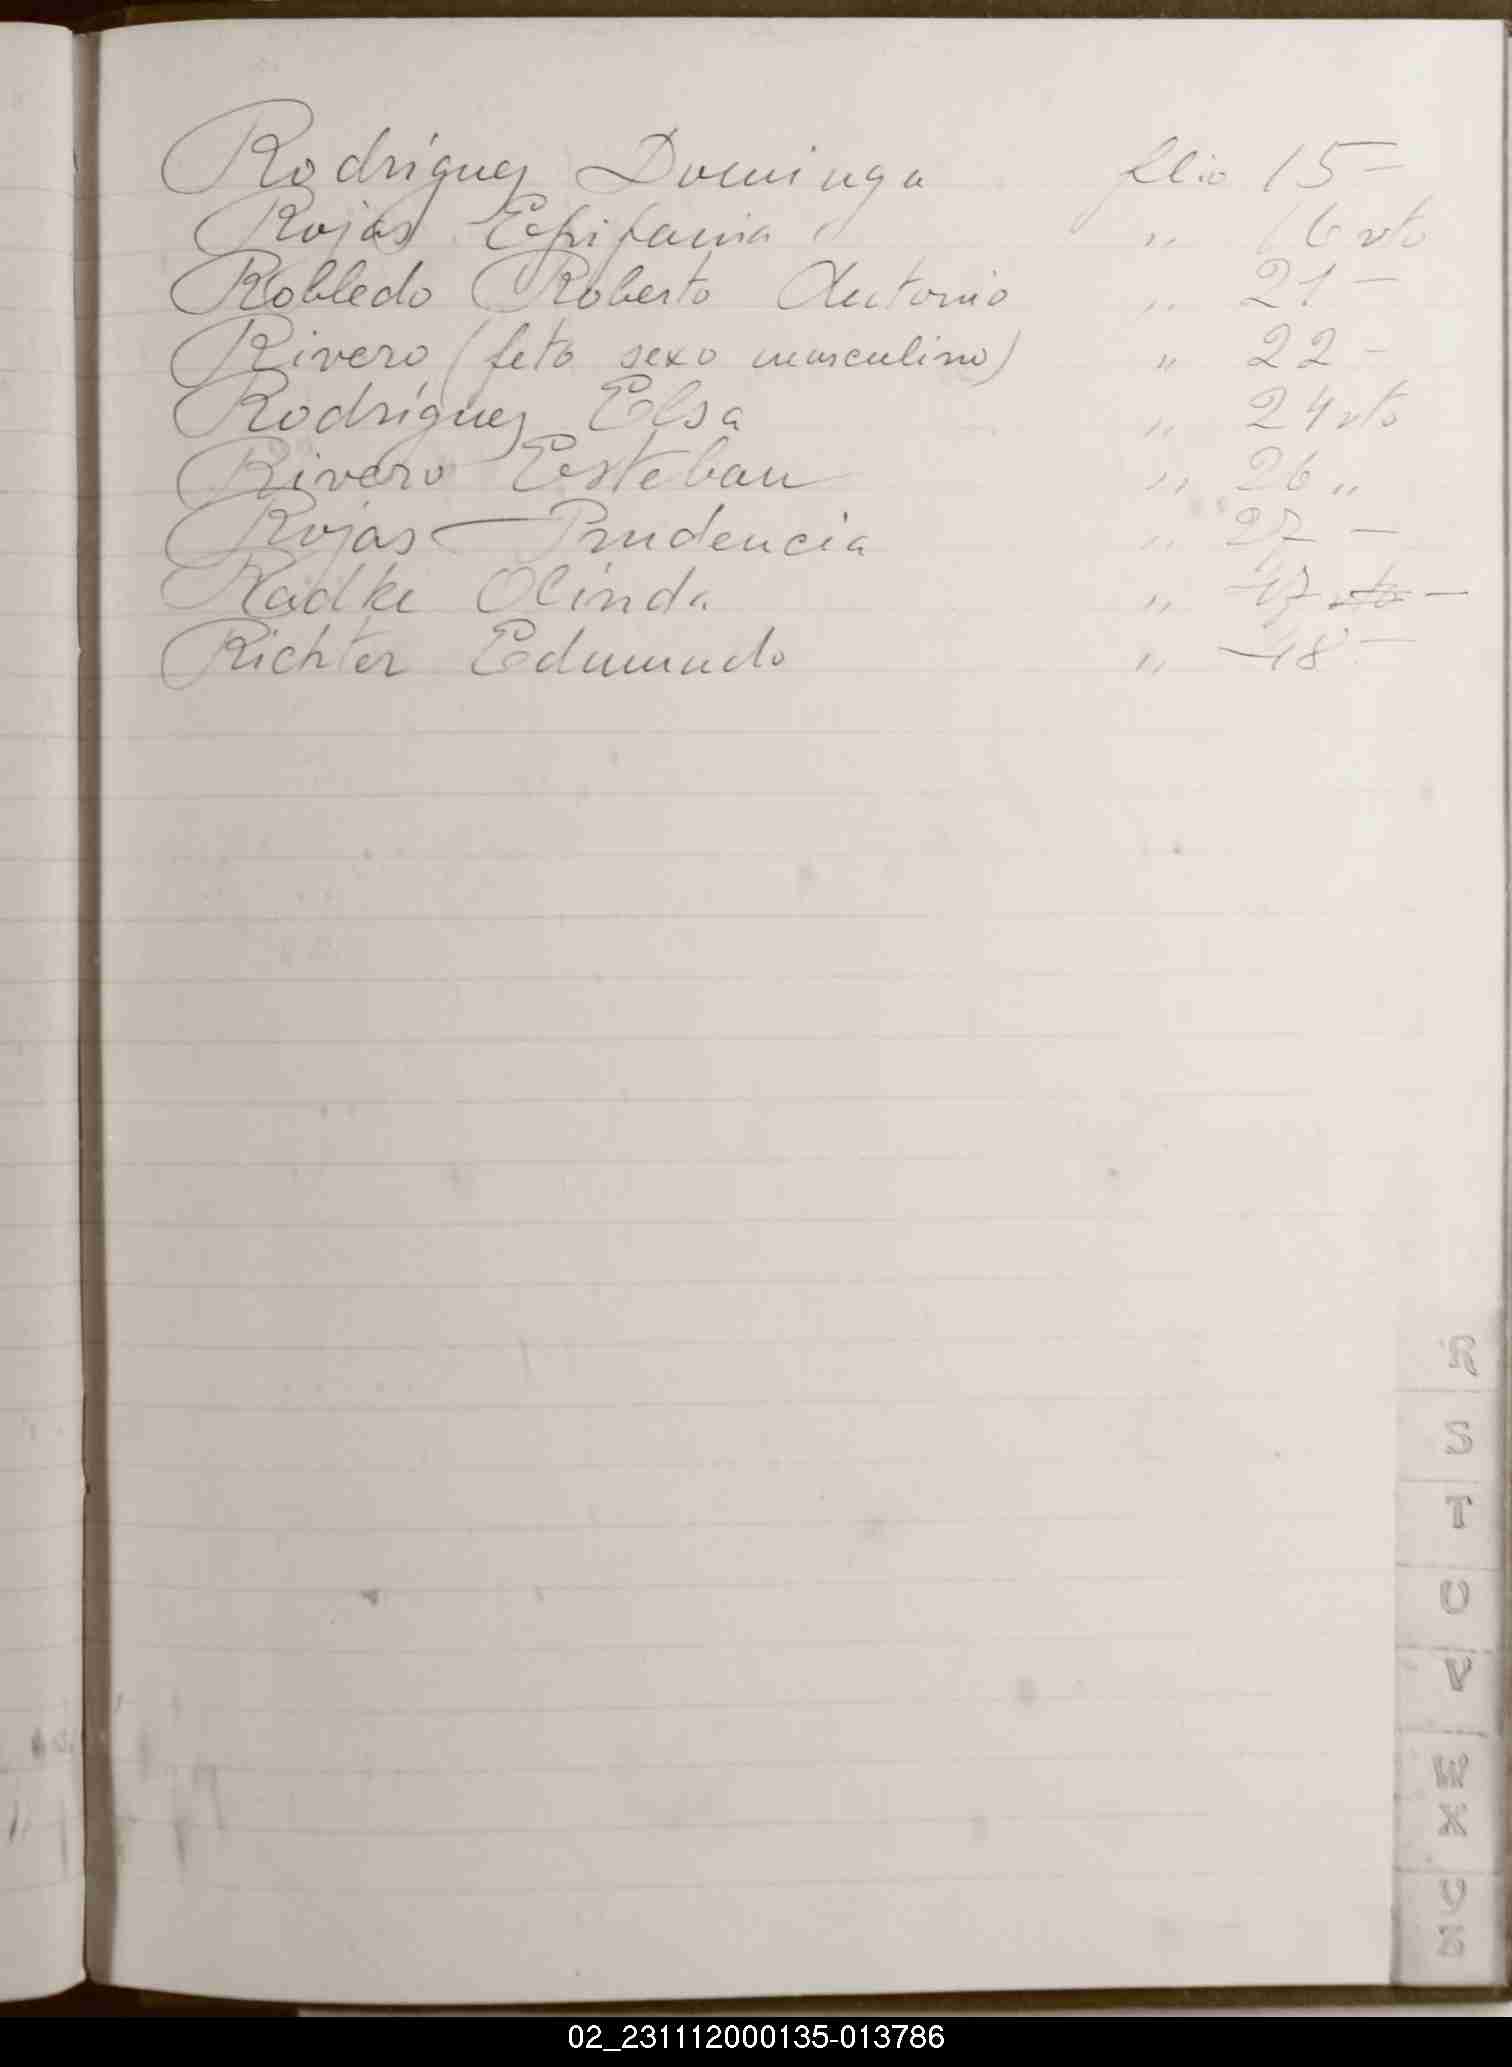 Rodríguez Dominga folio 15 –
Rojas Epifania " 16 vto
Robledo Roberto Antonio " 21 –
Rivero (feto sexo masculino) " 22 –
Rodríguez Elsa " 24 vto
Rivero Esteban " 26 "
Rojas – Prudencia " 27 –
Radke Olinda " 47 –
Richter Edmundo " 48 –
R
S
T
U
V
W
X
02_231112000135-013786